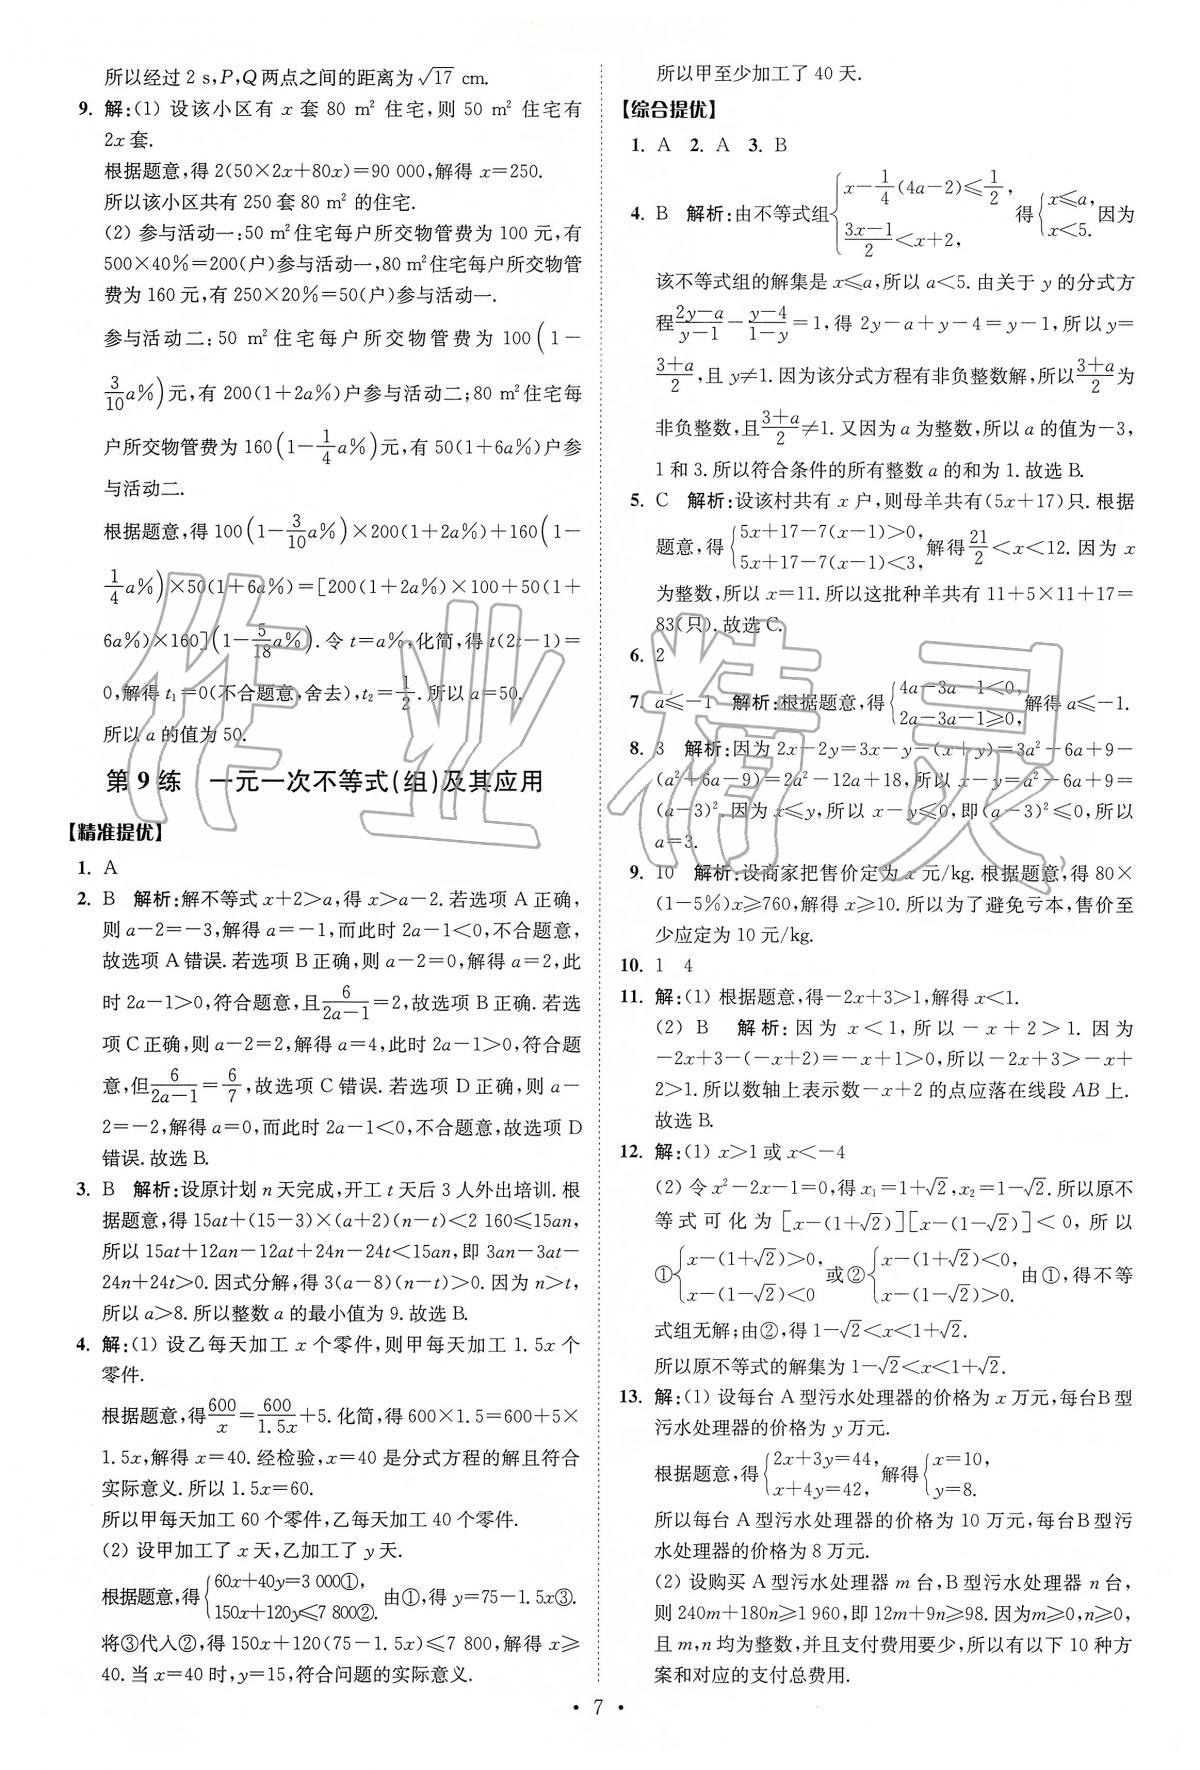 所以经过 2 s,P,Q 两点之间的距离为√17 cm.
9. 解:(1) 设该小区有 x 套 80 m² 住宅,则 50 m² 住宅有
2x 套.
根据题意,得 2(50×2x+80x)=90 000,解得 x=250.
所以该小区共有 250 套 80 m² 的住宅.
(2) 参与活动一:50 m²住宅每户所交物管费为 100 元,有
500×40%=200(户)参与活动一,80 m²住宅每户所交物管
费为 160 元,有 250×20%=50(户)参与活动一.
参与活动二:50 m²住宅每户所交物管费为 100(1-
3/10 a%)元,有 200(1+2a%)户参与活动二;80 m²住宅每
户所交物管费为 160(1-1/4 a%)元,有 50(1+6a%)户参
与活动二.
根据题意,得 100(1-3/10 a%)×200(1+2a%)+160(1-
1/4 a%)×50(1+6a%)=[200(1+2a%)×100+50(1+
6a%)×160](1-5/18 a%).令 t=a%,化简,得 t(2t-1)=
0,解得 t₁=0(不合题意,舍去),t₂=1/2.所以 a=50.
所以 a 的值为 50.
第 9 练 一元一次不等式(组)及其应用
【精准提优】
1. A
2. B 解析:解不等式 x+2>a,得 x>a-2.若选项 A 正确,
则 a-2=-3,解得 a=-1,而此时 2a-1<0,不合题意,
故选项 A 错误.若选项 B 正确,则 a-2=0,解得 a=2,此
时 2a-1>0,符合题意,且6/(2a-1)=2,故选项 B 正确.若选
项 C 正确,则 a-2=2,解得 a=4,此时 2a-1>0,符合题
意,但6/(2a-1)=6/7,故选项 C 错误.若选项 D 正确,则 a-
2=-2,解得 a=0,而此时 2a-1<0,不合题意,故选项 D
错误.故选 B.
3. B 解析:设原计划 n 天完成,开工 t 天后 3 人外出培训.根
据题意,得 15at+(15-3)×(a+2)(n-t)<2 160≤15an,
所以 15at+12an-12at+24n-24t<15an,即 3an-3at-
24n+24t>0.因式分解,得 3(a-8)(n-t)>0.因为 n>t,
所以 a>8.所以整数 a 的最小值为 9.故选 B.
4. 解:(1) 设乙每天加工 x 个零件,则甲每天加工 1.5x 个
零件.
根据题意,得600/x=600/1.5x+5.化简,得 600×1.5=600+5×
1.5x,解得 x=40.经检验,x=40 是分式方程的解且符合
实际意义.所以 1.5x=60.
所以甲每天加工 60 个零件,乙每天加工 40 个零件.
(2) 设甲加工了 x 天,乙加工了 y 天.
根据题意,得{60x+40y=3 000①, 150x+120y≤7 800②. 由①,得 y=75-1.5x③.
将③代入②,得 150x+120(75-1.5x)≤7 800,解得 x≥
40.当 x=40 时,y=15,符合问题的实际意义.
所以甲至少加工了 40 天.
【综合提优】
1. A 2. A 3. B
4. B 解析:由不等式组{x-1/4(4a-2)≤1/2, (3x-1)/2<x+2, 得{x≤a, x<5. 因为
该不等式组的解集是 x≤a,所以 a<5.由关于 y 的分式方
程(2y-a)/(y-1)-(y-4)/(1-y)=1,得 2y-a+y-4=y-1,所以 y=
(3+a)/2,且 y≠1.因为该分式方程有非负整数解,所以(3+a)/2为
非负整数,且(3+a)/2≠1.又因为 a 为整数,所以 a 的值为-3,
1 和 3.所以符合条件的所有整数 a 的和为 1.故选 B.
5. C 解析:设该村共有 x 户,则母羊共有(5x+17)只.根据
题意,得{5x+17-7(x-1)>0, 5x+17-7(x-1)<3, 解得21/2<x<12.因为 x
为整数,所以 x=11.所以这批种羊共有 11+5×11+17=
83(只).故选 C.
6. 2
7. a≤-1 解析:根据题意,得{4a-3a-1<0, 2a-3a-1≥0, 解得 a≤-1.
8. 3 解析:因为 2x-2y=3x-y-(x+y)=3a²-6a+9-
(a²+6a-9)=2a²-12a+18,所以 x-y=a²-6a+9=
(a-3)².因为 x≤y,所以 x-y≤0,即(a-3)²≤0,所以
a=3.
9. 10 解析:设商家把售价定为 x 元/kg.根据题意,得 80×
(1-5%)x≥760,解得 x≥10.所以为了避免亏本,售价至
少应定为 10 元/kg.
10. 1 4
11. 解:(1) 根据题意,得-2x+3>1,解得 x<1.
(2) B 解析:因为 x<1,所以-x+2>1.因为
-2x+3-(-x+2)=-x+1>0,所以-2x+3>-x+
2>1.所以数轴上表示数-x+2 的点应落在线段 AB 上.
故选 B.
12. 解:(1) x>1 或 x<-4
(2) 令 x²-2x-1=0,得 x₁=1+√2,x₂=1-√2.所以原不
等式可化为[x-(1+√2)][x-(1-√2)]<0,所以
①{x-(1+√2)>0, x-(1-√2)<0 或②{x-(1+√2)<0, x-(1-√2)>0. 由①,得不等
式组无解;由②,得 1-√2<x<1+√2.
所以原不等式的解集为 1-√2<x<1+√2.
13. 解:(1) 设每台 A 型污水处理器的价格为 x 万元,每台B 型
污水处理器的价格为 y 万元.
根据题意,得{2x+3y=44, x+4y=42, 解得{x=10, y=8.
所以每台 A 型污水处理器的价格为 10 万元,每台B型污
水处理器的价格为 8 万元.
(2) 设购买 A 型污水处理器 m 台,B 型污水处理器 n 台,
则 240m+180n≥1 960,即 12m+9n≥98.因为m≥0,n≥0,
且 m,n 均为整数,并且支付费用要少,所以有以下 10 种方
案和对应的支付总费用.
• 7 •
作业精灵